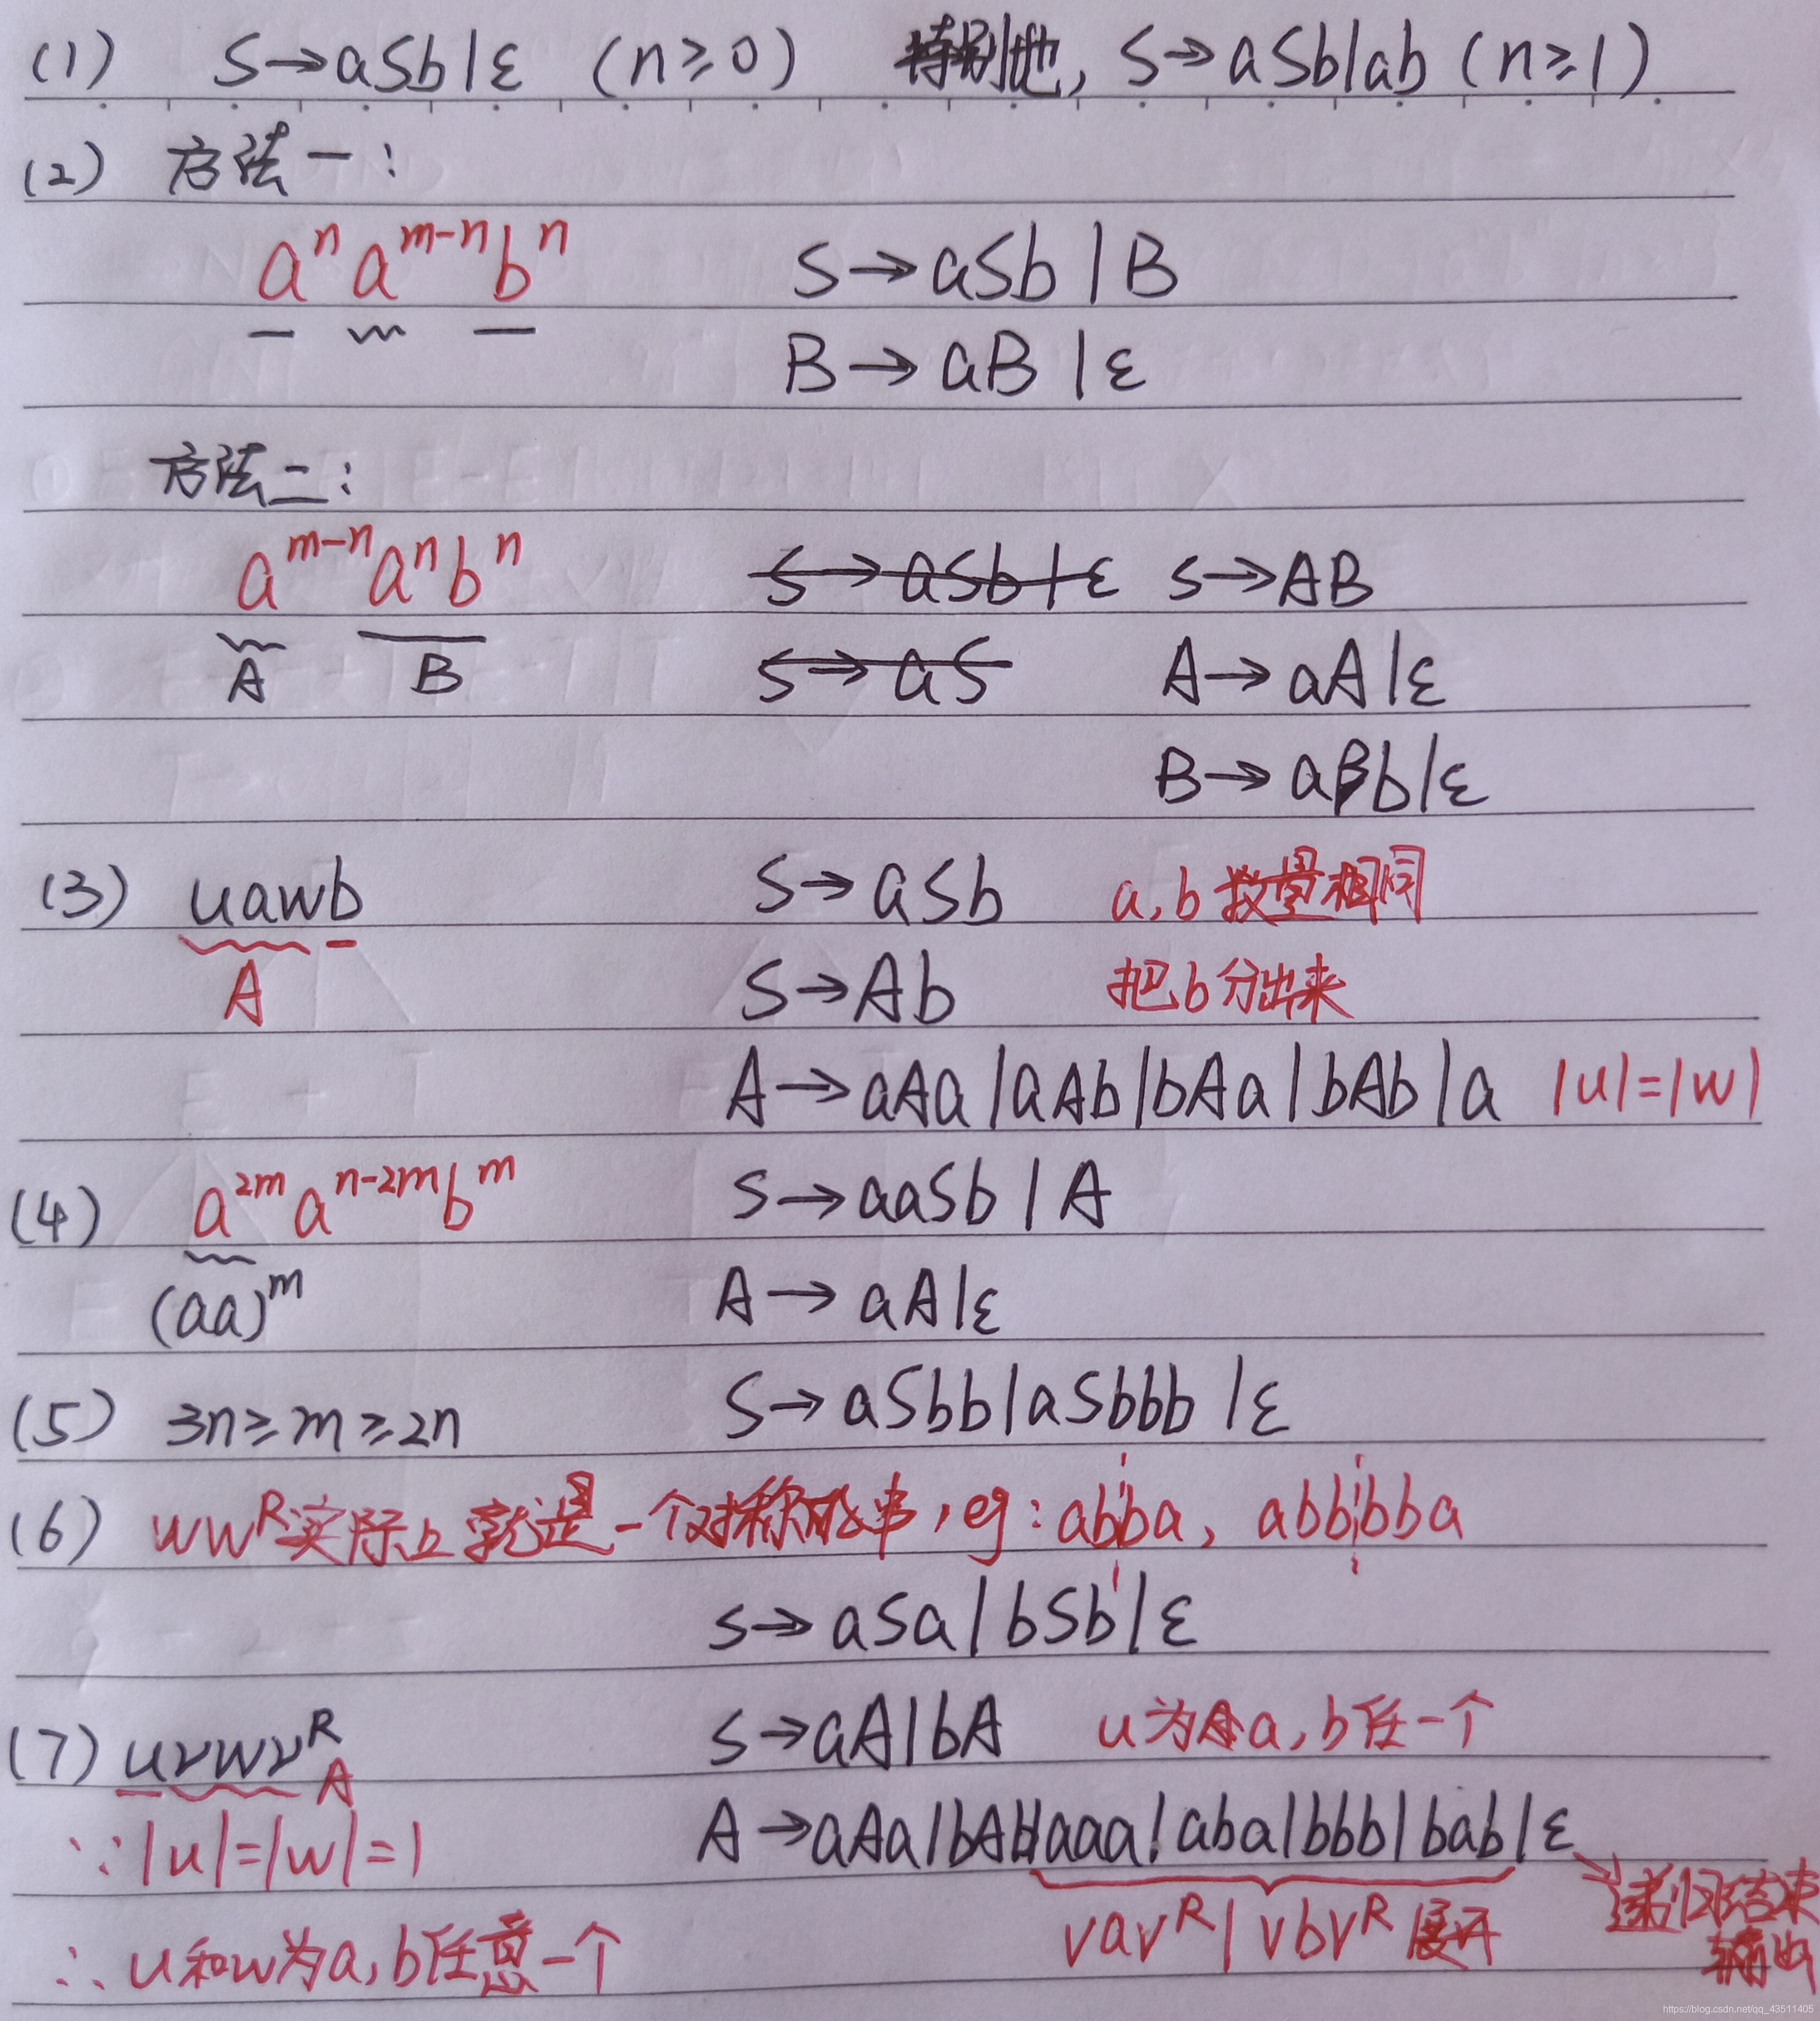 (1) S→aSb|ε (n≥0) 特别地, S→aSb|ab (n≥1)
(2) 方法一:
aⁿ aᵐ⁻ⁿ bⁿ S→aSb | B
B→aB | ε
方法二:
aᵐ⁻ⁿ aⁿ bⁿ S→aSb|ε S→AB
A B S→aS A→aA|ε
B→aBb|ε
(3) uawb S→aSb a,b数量相同
A S→Ab 把b分出来
A→aAa|aAb|bAa|bAb|a |u|=|w|
(4) a²ᵐ aⁿ⁻²ᵐ bᵐ S→aaSb | A
(aa)ᵐ A→aA|ε
(5) 3n≥m≥2n S→aSbb|aSbbb|ε
(6) wwᴿ实际上就是一个对称的串, eg: abba, abbbba
S→aSa|bSb|ε
(7) uvwvᴿ S→aA|bA u为a,b任一个
A
∵|u|=|w|=1 A→aAa|bAb|aaa|aba|bbb|bab|ε
vavᴿ|vbvᴿ展开 递归结束
∴u和w为a,b任意一个 输出
https://blog.csdn.net/qq_43511405